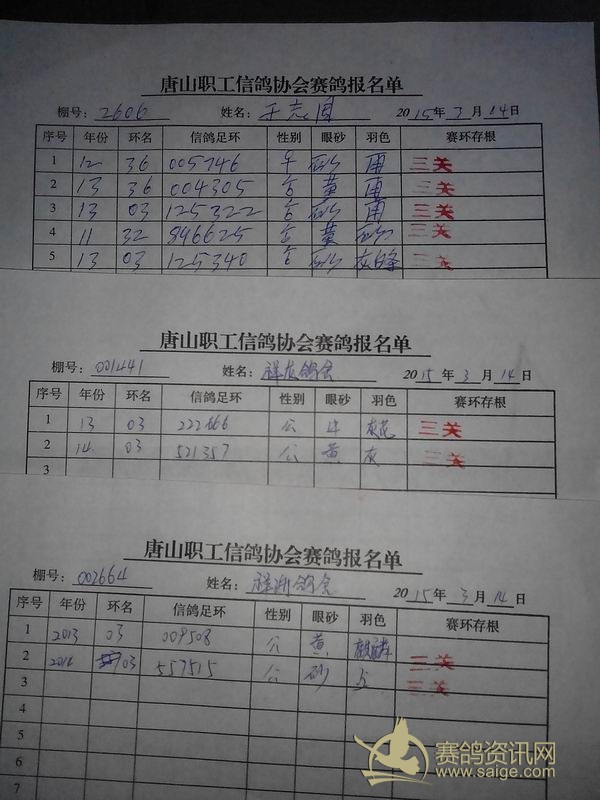 唐山职工信鸽协会赛鸽报名单
棚号: 2606 姓名: 2015年3月14日
序号 年份 环名 信鸽足环 性别 眼砂 羽色 赛环存根
1 12 36 005746 砂 三关
2 13 36 004305 黄 三关
3 13 03 125322 砂 三关
4 11 32 946625 黄 三关
5 13 03 125340 砂 三关
唐山职工信鸽协会赛鸽报名单
棚号: 001441 姓名: 2015年3月14日
序号 年份 环名 信鸽足环 性别 眼砂 羽色 赛环存根
1 13 03 222666 公 牛 灰花 三关
2 14 03 521357 公 黄 灰 三关
3
唐山职工信鸽协会赛鸽报名单
棚号: 002664 姓名: 2015年3月14日
序号 年份 环名 信鸽足环 性别 眼砂 羽色 赛环存根
1 2013 03 009508 公 黄 三关
2 2014 03 557515 公 砂 三关
3
4
5
6
7
赛鸽资讯网
www.saige.com